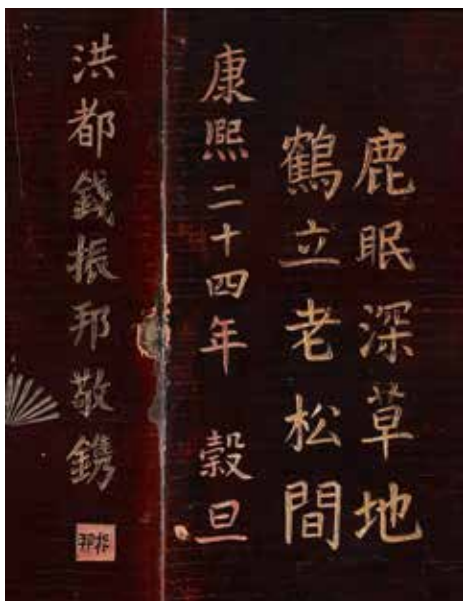 鹿眠深草地
鶴立老松間
康熙二十四年 穀旦
洪都錢振邦敬鐫
振邦